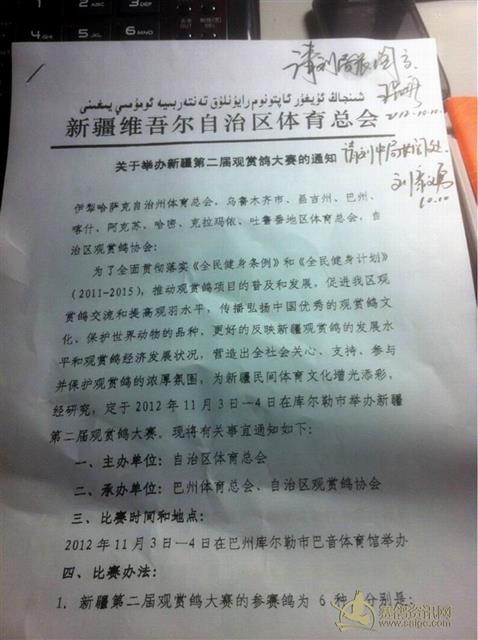 请刘局长阅示
شىنجاڭ ئۇيغۇر ئاپتونوم رايونلۇق تەنتەربىيە ئومۇمىي يىغىنى
新疆维吾尔自治区体育总会
2012.10.10
关于举办新疆第二届观赏鸽大赛的通知
10.10
伊犁哈萨克自治州体育总会，乌鲁木齐市、昌吉州、巴州、
喀什、阿克苏、哈密、克拉玛依、吐鲁番地区体育总会，自
治区观赏鸽协会：
为了全面贯彻落实《全民健身条例》和《全民健身计划》
(2011-2015)，推动观赏鸽项目的普及和发展，促进我区观
赏鸽交流和提高观羽水平，传播弘扬中国优秀的观赏鸽文
化、保护世界动物的品种，更好的反映新疆观赏鸽的发展水
平和观赏鸽经济发展状况，营造出全社会关心、支持、参与
并保护观赏鸽的浓厚氛围，为新疆民间体育文化增光添彩，
经研究，定于 2012 年 11 月 3 日—4 日在库尔勒市举办新疆
第二届观赏鸽大赛。现将有关事宜通知如下：
一、主办单位：自治区体育总会
二、承办单位：巴州体育总会、自治区观赏鸽协会
三、比赛时间和地点：
2012 年 11 月 3 日—4 日在巴州库尔勒市巴音体育馆举办
四、比赛办法：
1. 新疆第二届观赏鸽大赛的参赛鸽为 6 种，分别是：
赛鸽资讯网
www.saige.com